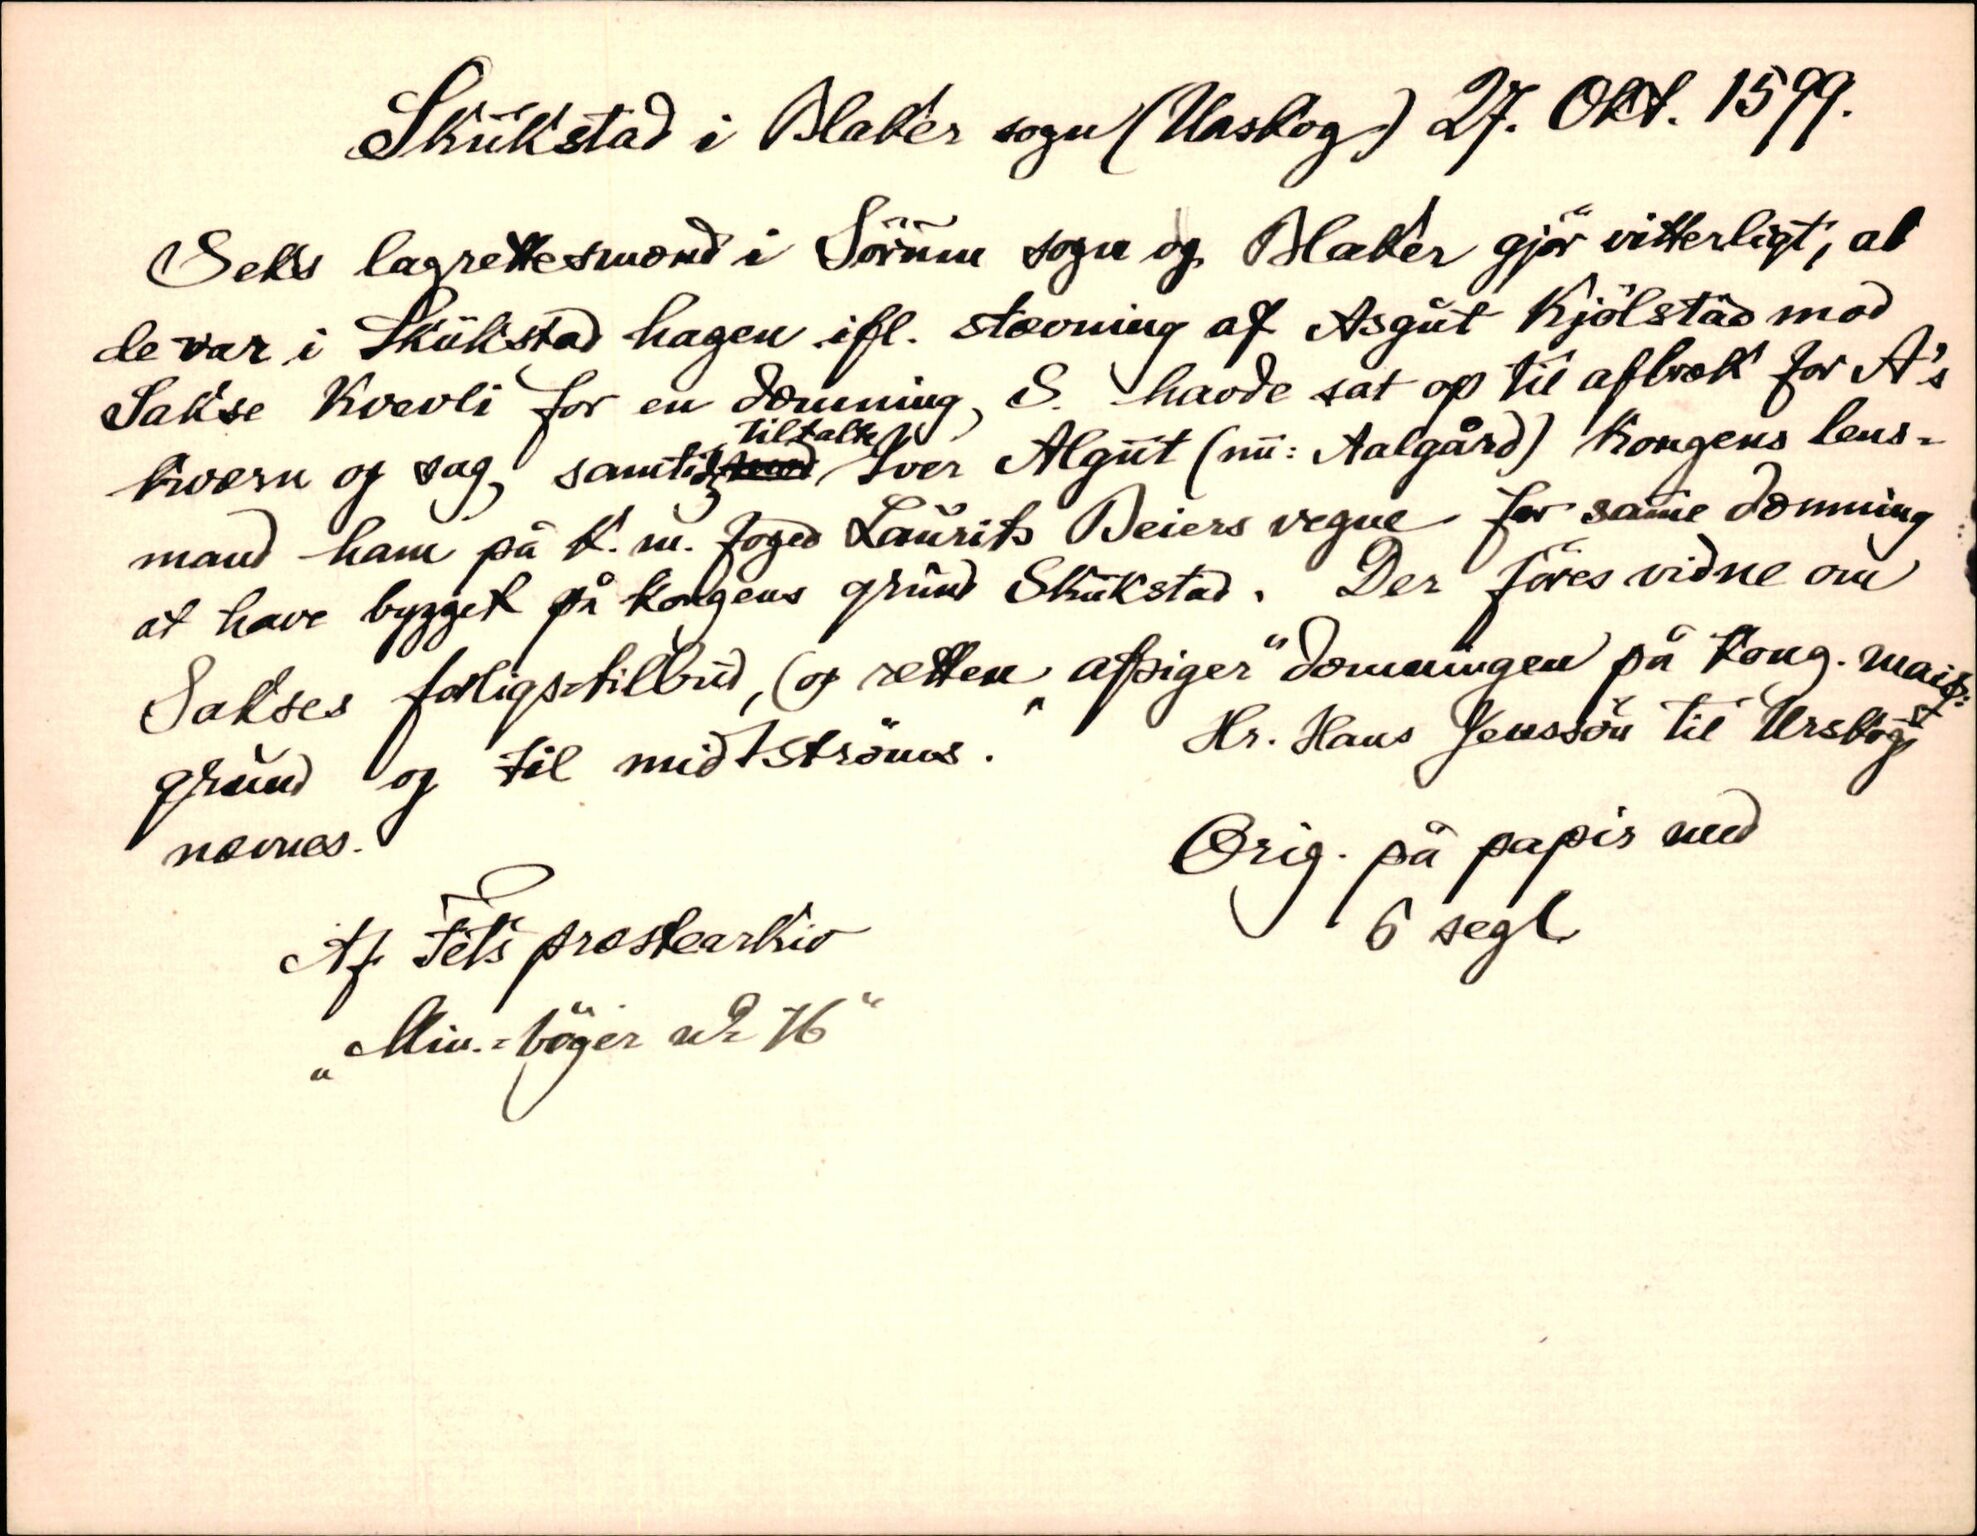 Skukstad i Blaker sogn (Urskog) 27. Okt. 1599.
Seks lagrettesmænd i Sörum sogn og Blaker gjör vitterligt, at
de var i Skukstad hagen ifl. stævning af Asgut Kjölstad mod
Sakse Kvevli for en dæmning, S. havde sat op til afbræk for A's
kværn og sag, samtidig tiltalte Iver Algut (nu: Aalgård) kongens lens-
mand ham på k. m. foged Laurits Beiers vegne for samme dæmning
at have bygget på kongens grund Skukstad. Der föres vidne om
Sakses forligstilbud, (og retten „afsiger“ dæmningen på kong. maig:
grund og til midtströms. Hr. Hans Jenssön til Urskog
nævnes.
Orig. på papir med
6 segl
Af Fets præstearkiv
„Min.-böger nr 16“